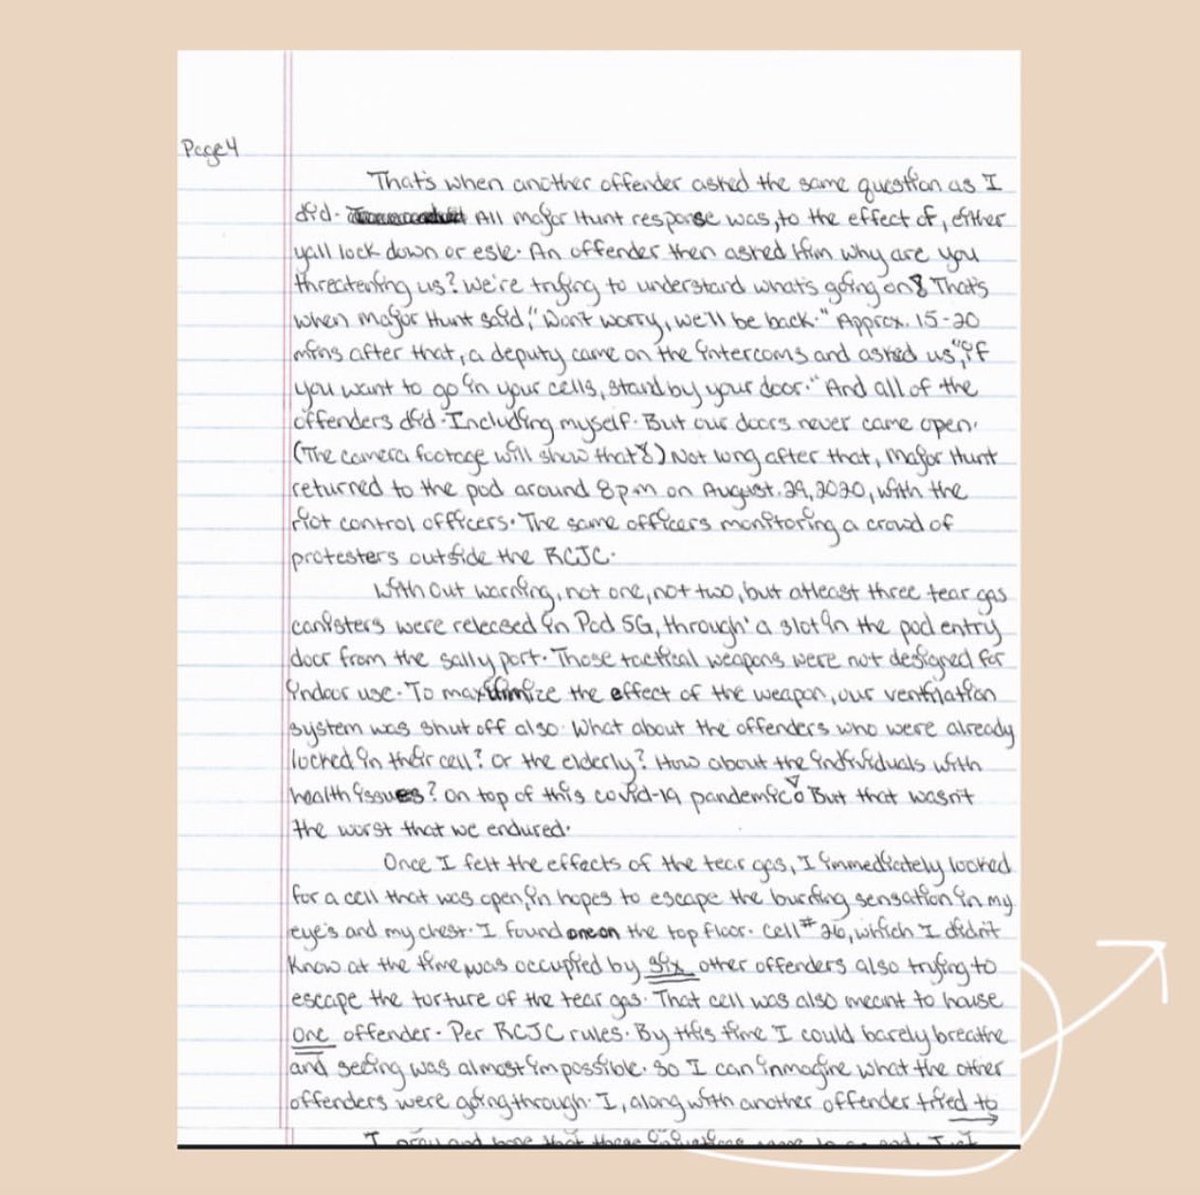 Page 4
That's when another offender asked the same question as I
did. All major Hunt response was, to the effect of, either
yall lock down or esle. An offender then asked Him why are you
threatening us? We're trying to understand what's going on! That's
when major Hunt said, "Don't worry, we'll be back." Approx. 15-20
mins after that, a deputy came on the intercoms and asked us, "if
you want to go in your cells, stand by your door." And all of the
offenders did. Including myself. But our doors never came open.
(The camera footage will show that!) Not long after that, major Hunt
returned to the pod around 8pm on August. 29, 2020, with the
riot control officers. The same officers monitoring a crowd of
protesters outside the RCJC.
With out warning, not one, not two, but atleast three tear gas
canisters were released in Pod 5G, through a slot in the pod entry
door from the sally port. Those tactical weapons were not designed for
indoor use. To maximize the effect of the weapon, our ventilation
system was shut off also. What about the offenders who were already
locked in their cell? Or the elderly? How about the individuals with
health issues? On top of this covid-19 pandemic! But that wasn't
the worst that we endured.
Once I felt the effects of the tear gas, I immediately looked
for a cell that was open, in hopes to escape the burning sensation in my
eye's and my chest. I found one on the top floor. Cell # 26, which I didn't
know at the time, was occupied by six other offenders also trying to
escape the torture of the tear gas. That cell was also meant to house
one offender. Per RCJC rules. By this time I could barely breathe
and seeing was almost impossible. So I can inmagine what the other
offenders were going through. I, along with another offender tried to